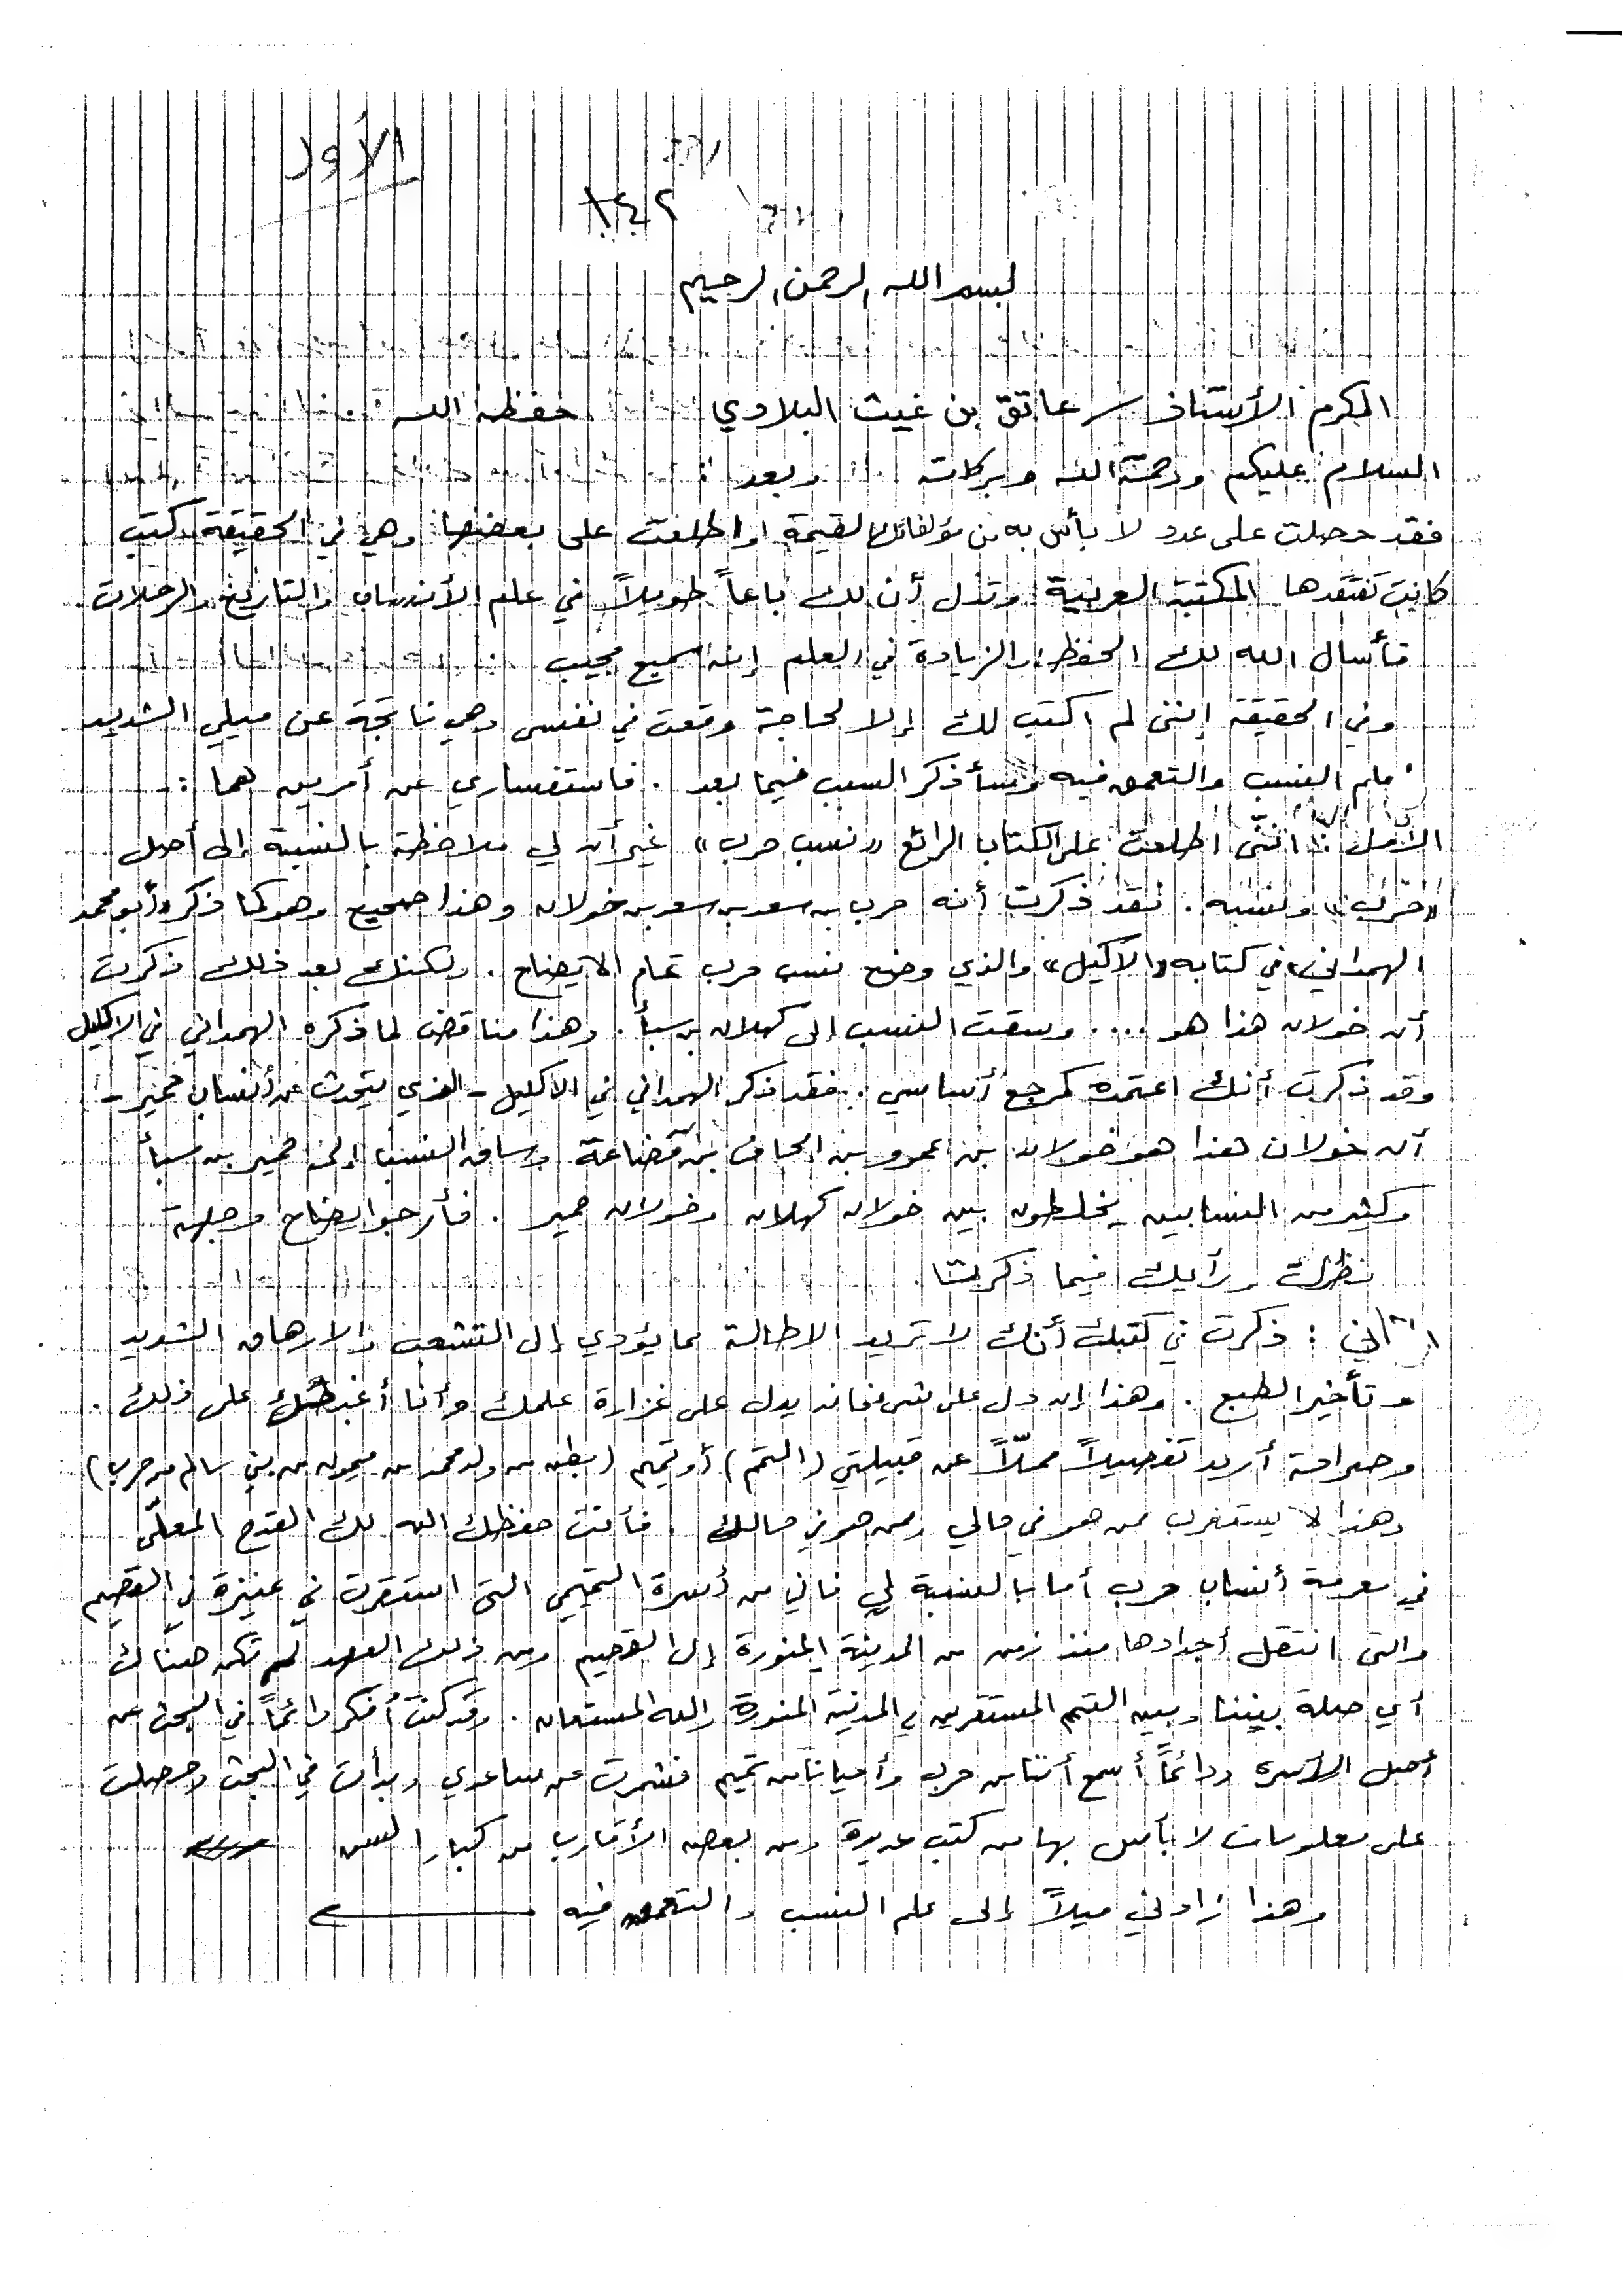 الأول
١٤٢
بسم الله الرحمن الرحيم
المكرم الأستاذ / عاتق بن غيث البلادي حفظه الله
السلام عليكم ورحمة الله وبركاته وبعد :
فقد حصلت على عدد لا بأس به من مؤلفاتك القيمة واطلعت على بعضها وهي في الحقيقة كتب
كانت تفتقدها المكتبة العربية وتدل أن لك باعاً طويلاً في علم الأنساب والتاريخ والرحلات .
فأسال الله لك الحفظ والزيادة في العلم إنه سميع مجيب
وفي الحقيقة إنني لم اكتب لك إلا لحاجة وقعت في نفسي وهي ناتجة عن ميلي الشديد
لعلم النسب والتعمق فيه وسأذكر السبب فيما بعد . فاستفساري عن أمرين هما :
الأول : انني اطلعت على الكتاب الرائع «نسب حرب» غير أن لي ملاحظة بالنسبة إلى أصل
«حرب» ونسبه . فقد ذكرت أنه حرب بن سعد بن سعد بن خولان وهذا صحيح وهو كما ذكر «أبو محمد
الهمداني» في كتابه «الاكليل» والذي وضح نسب حرب تمام الايضاح . ولكنك بعد ذلك ذكرت
أن خولان هذا هو .... وسقت النسب إلى كهلان بن سبأ . وهذا مناقض لما ذكره الهمداني في الاكليل
وقد ذكرت أنك اعتمدته كمرجع أساسي . فقد ذكر الهمداني في الاكليل - الذي يتحدث عن أنساب حمير -
أن خولان هذا هو خولان بن عمرو بن الحاف بن قضاعة وساق النسب إلى حمير بن سبأ
وكثير من النسابين يخلطون بين خولان كهلان وخولان حمير . فأرجو ايضاح وجهة
نظرك ورأيك فيما ذكرت .
الثاني : ذكرت في كتبك أنك لا تريد الاطالة مما يؤدي إلى التشعب والارهاق الشديد
وتأخير الطبع . وهذا إن دل على شيء فانه يدل على غزارة علمك وأنا أغبطك على ذلك .
وصراحة أريد تفصيلاً مملاً عن قبيلتي (التمم) أو تميم (بطن من ولد محمد من ميمون من بني سالم من حرب)
وهذا لا يستغرب ممن هو في حالي وممن هو في حالك . فأنت حفظك الله لك القدح المعلّى
في معرفة أنساب حرب أما بالنسبة لي فاني من أسرة التميمي التي استقرت في عنيزة في القصيم
والتي انتقل أجدادها منذ زمن من المدينة المنورة إلى القصيم ومن ذلك العهد لم تكن هناك
أي صلة بيننا وبين التمم المستقرين في المدينة المنورة والله المستعان . وقد كنت أفكر دائماً في البحث عن
أصل الأسرة ودائماً أسمع أننا من حرب وأحيانا من تميم فشمرت عن ساعدي وبدأت في البحث وحصلت
على معلومات لا بأس بها من كتب عديدة ومن بعض الأقارب من كبار السن
وهذا زادني ميلاً إلى علم النسب والتعمق فيه